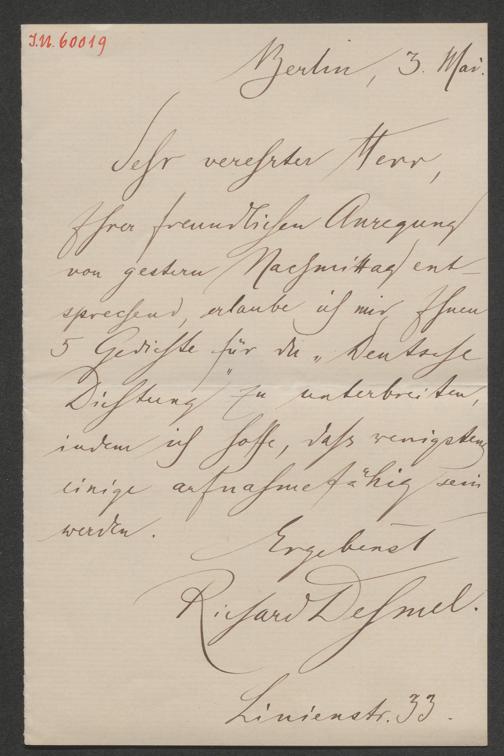 I.N. 60019
Berlin, 3. Mai.
Sehr verehrter Herr,
Ihrer freundlichen Anregung
von gestern Nachmittag ent-
sprechend, erlaube ich mir, Ihnen
5 Gedichte für die „Deutsche
Dichtung" zu unterbreiten,
indem ich hoffe, daß wenigstens
einige aufnahmefähig sein
werden.
Ergebenst
Richard Dehmel.
Linienstr. 33.